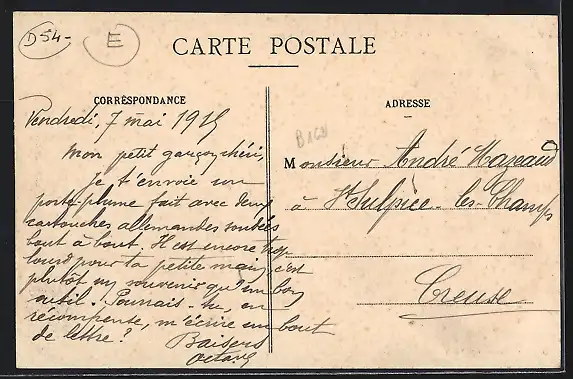 D54-
E
CARTE POSTALE
CORRESPONDANCE
Vendredi, 7 mai 1915
Mon petit garçon chéri,
Je t'envoie un
porte-plume fait avec deux
cartouches allemandes soudées
bout à bout. Il est encore trop
lourd pour ta petite main, c'est
plutôt un souvenir qu'un bon
outil. Pourrais-tu, en
récompense, m'écrire un bout
de lettre?
Baisers
ADRESSE
Monsieur André Mazeaud
à St Sulpice-les-Champs
Creuse